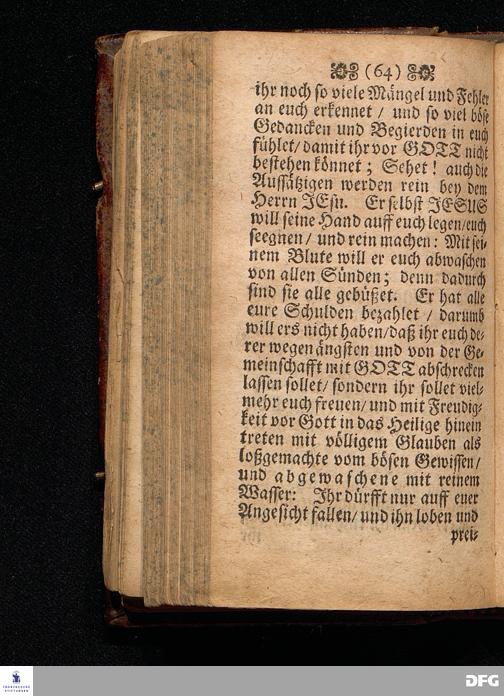 (64)
ihr noch so viele Mängel und Fehler
an euch erkennet / und so viel böse
Gedancken und Begierden in euch
fühlet/ damit ihr vor GOTT nicht
bestehen könnet; Sehet! auch die
Aussätzigen werden rein bey dem
Herrn JEsu. Er selbst JESUS
will seine Hand auff euch legen/euch
seegnen/ und rein machen: Mit sei-
nem Blute will er euch abwaschen
von allen Sünden; denn dadurch
sind sie alle gebüßet. Er hat alle
eure Schulden bezahlet / darumb
will ers nicht haben/daß ihr euch de-
rer wegen ängsten und von der Ge-
meinschafft mit GOTT abschrecken
lassen sollet/ sondern ihr sollet viel-
mehr euch freuen/ und mit Freudig-
keit vor Gott in das Heilige hinein
treten mit völligem Glauben als
loßgemachte vom bösen Gewissen/
und abgewaschene mit reinem
Wasser: Ihr dürfft nur auff euer
Angesicht fallen/ und ihn loben und
prei-
FRANCKESCHE
STIFTUNGEN
DFG